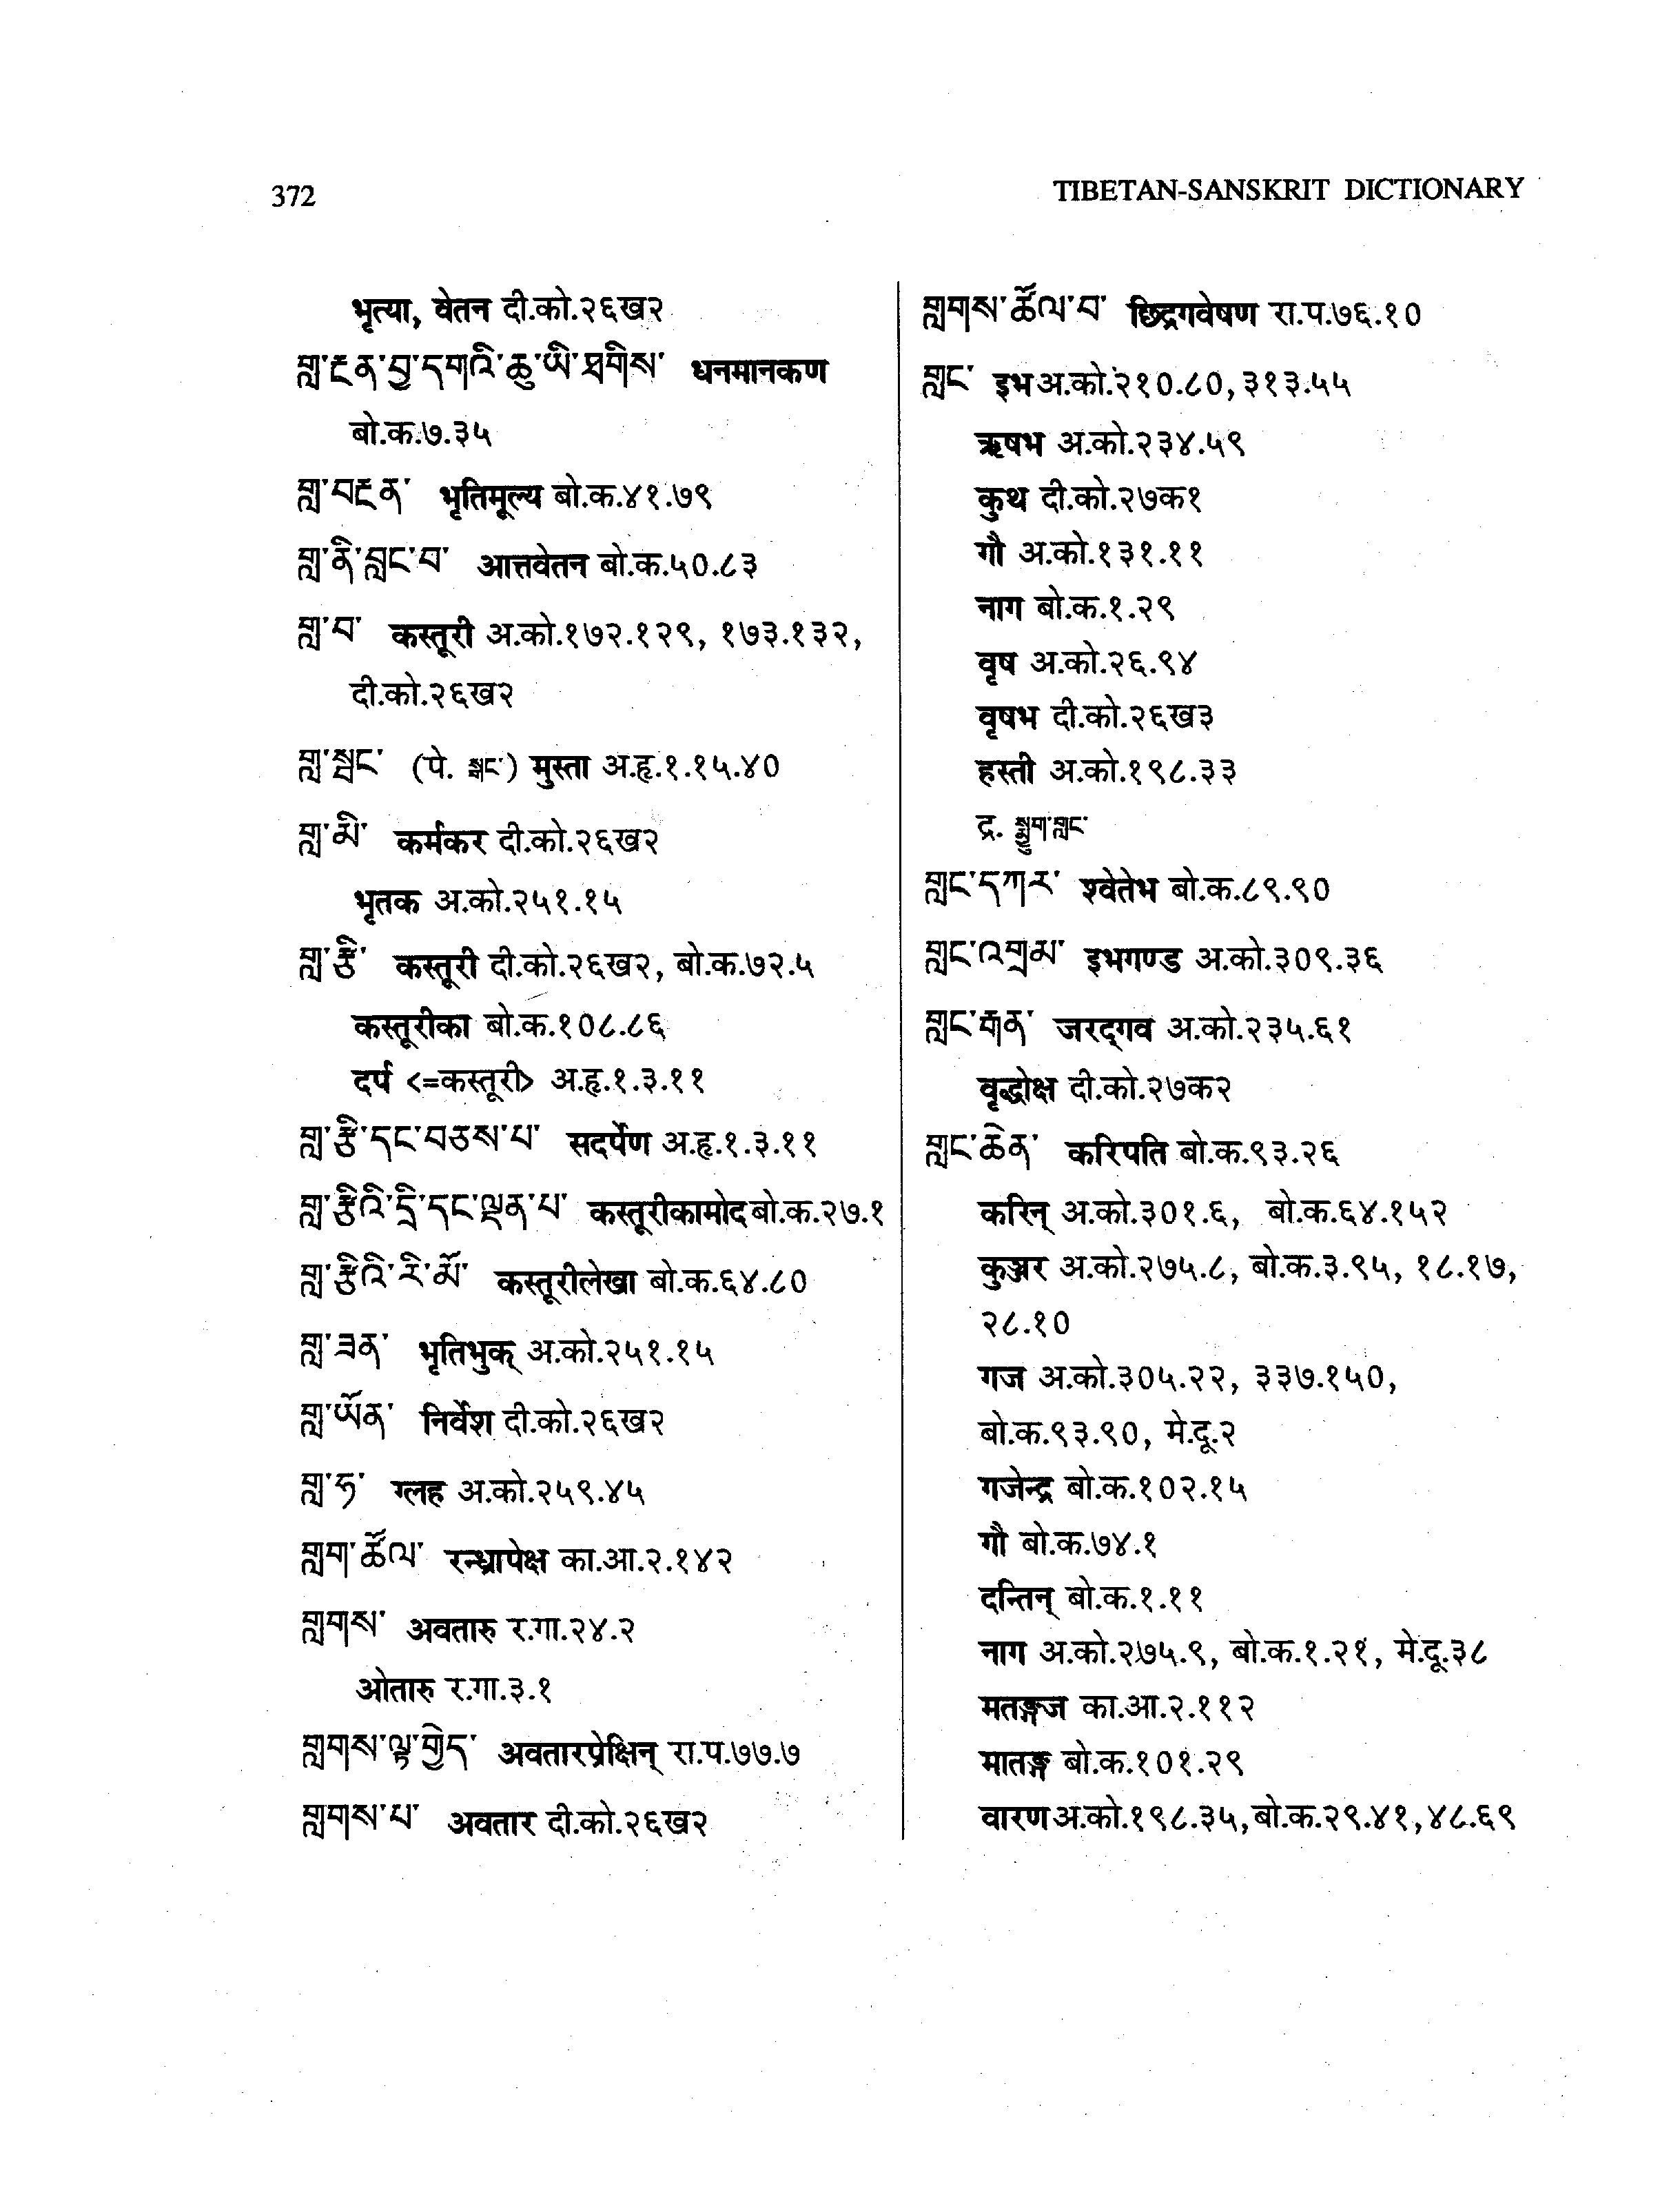 372
TIBETAN-SANSKRIT DICTIONARY
भृत्या, वेतन दी.को.२६ख२
གླ་རྔན་བྱ་དགའི་ཆུ་ཡི་ཐགིས་ धनमानकण
बो.क.७.३५
གླ་བརྔན་ भृतिमूल्य बो.क.४१.७९
གླ་ནི་བླང་བ་ आत्तवेतन बो.क.५०.८३
གླ་བ་ कस्तूरी अ.को.१७२.१२९, १७३.१३२,
दी.को.२६ख२
གླ་སྒང་ (पे. སྒང་) मुस्ता अ.हृ.१.१५.४०
གླ་མི་ कर्मकर दी.को.२६ख२
भृतक अ.को.२५१.१५
གླ་རྩི་ कस्तूरी दी.को.२६ख२, बो.क.७२.५
कस्तूरीका बो.क.१०८.८६
दर्प <=कस्तूरी> अ.हृ.१.३.११
གླ་རྩི་དང་བཅས་པ་ सदर्पेण अ.हृ.१.३.११
གླ་རྩིའི་དྲི་དང་ལྡན་པ་ कस्तूरीकामोद बो.क.२७.१
གླ་རྩིའི་རི་མོ་ कस्तूरीलेखा बो.क.६४.८०
གླ་ཟན་ भृतिभुक् अ.को.२५१.१५
གླ་ཡོན་ निर्वेश दी.को.२६ख२
གླ་ཧ་ ग्लह अ.को.२५९.४५
གླག་ཚོལ་ रन्ध्रापेक्ष का.आ.२.१४२
གླགས་ अवतारु र.गा.२४.२
ओतारु र.गा.३.१
གླགས་ལྟ་བྱེད་ अवतारप्रेक्षिन् रा.प.७७.७
གླགས་པ་ अवतार दी.को.२६ख२
གླགས་ཚོལ་བ་ छिद्रगवेषण रा.प.७६.१०
གླང་ इभ अ.को.२१०.८०, ३१३.५५
ऋषभ अ.को.२३४.५९
कुथ दी.को.२७क१
गौ अ.को.१३१.११
नाग बो.क.१.२९
वृष अ.को.२६.९४
वृषभ दी.को.२६ख३
हस्ती अ.को.१९८.३३
द्र. སྨྱུག་གླང་
གླང་དཀར་ श्वेतेभ बो.क.८९.९०
གླང་འགྲམ་ इभगण्ड अ.को.३०९.३६
གླང་རྒན་ जरद्‌गव अ.को.२३५.६१
वृद्धोक्ष दी.को.२७क२
གླང་ཆེན་ करिपति बो.क.९३.२६
करिन् अ.को.३०१.६, बो.क.६४.१५२
कुञ्जर अ.को.२७५.८, बो.क.३.९५, १८.१७,
२८.१०
गज अ.को.३०५.२२, ३३७.१५०,
बो.क.९३.९०, मे.दू.२
गजेन्द्र बो.क.१०२.१५
गौ बो.क.७४.१
दन्तिन् बो.क.१.११
नाग अ.को.२७५.९, बो.क.१.२१, मे.दू.३८
मतङ्गज का.आ.२.११२
मातङ्ग बो.क.१०१.२९
वारण अ.को.१९८.३५, बो.क.२९.४१, ४८.६९